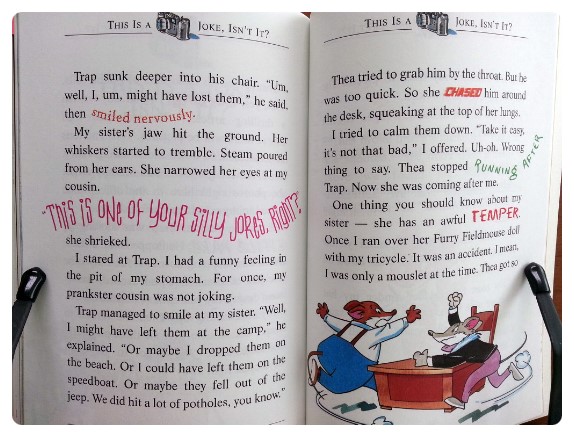 THIS IS A JOKE, ISN'T IT?
Trap sunk deeper into his chair. "Um,
well, I, um, might have lost them," he said,
then smiled nervously.
My sister's jaw hit the ground. Her
whiskers started to tremble. Steam poured
from her ears. She narrowed her eyes at my
cousin.
"THIS IS ONE OF YOUR SILLY JOKES, RIGHT?"
she shrieked.
I stared at Trap. I had a funny feeling in
the pit of my stomach. For once, my
prankster cousin was not joking.
Trap managed to smile at my sister. "Well,
I might have left them at the camp," he
explained. "Or maybe I dropped them on
the beach. Or I could have left them on the
speedboat. Or maybe they fell out of the
jeep. We did hit a lot of potholes, you know."
THIS IS A JOKE, ISN'T IT?
Thea tried to grab him by the throat. But he
was too quick. So she CHASED him around
the desk, squeaking at the top of her lungs.
I tried to calm them down. "Take it easy,
it's not that bad," I offered. Uh-oh. Wrong
thing to say. Thea stopped RUNNING AFTER
Trap. Now she was coming after me.
One thing you should know about my
sister — she has an awful TEMPER.
Once I ran over her Furry Fieldmouse doll
with my tricycle. It was an accident. I mean,
I was only a mouslet at the time. Thea got so